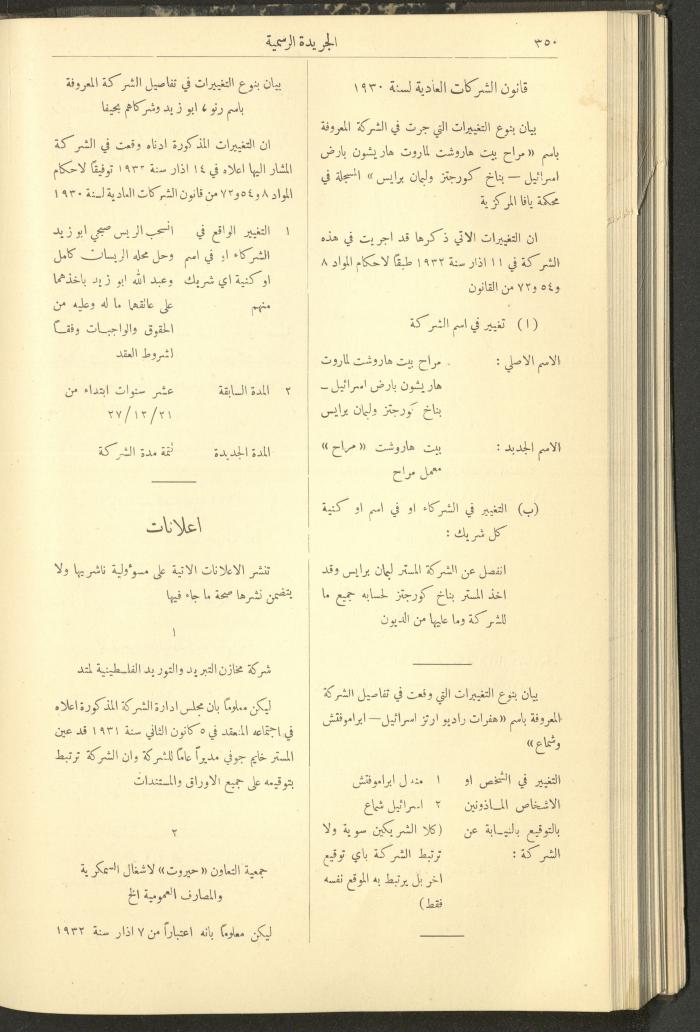 ٣٥٠
الجريدة الرسمية
قانون الشركات العادية لسنة ١٩٣٠
بيان بنوع التغييرات التي جرت في الشركة المعروفة
باسم «مراح بيت هاروشت لماروت هاريشون بارض
اسرائيل — بناخ كورجتز وليمان برايس» المسجلة في
محكمة يافا المركزية
ان التغييرات الاتي ذكرها قد اجريت في هذه
الشركة في ١١ اذار سنة ١٩٣٢ طبقًا لاحكام المواد ٨
و٥٤ و٧٢ من القانون
(ا) تغيير في اسم الشركة
الاسم الاصلي : مراح بيت هاروشت لماروت
هاريشون بارض اسرائيل —
بناخ كورجتز وليمان برايس
الاسم الجديد : بيت هاروشت «مراح»
معمل مراح
(ب) التغيير في الشركاء او في اسم او كنية
كل شريك :
انفصل عن الشركة المستر ليمان برايس وقد
اخذ المستر بناخ كورجتز لحسابه جميع ما
للشركة وما عليها من الديون
بيان بنوع التغييرات التي وقعت في تفاصيل الشركة
المعروفة باسم «هفرات راديو ارتز اسرائيل — ابراموفتش
وشماع»
التغيير في الشخص او ١ مندل ابراموفتش
الاشخاص المـاذونين ٢ اسرائيل شماع
بالتوقيع بالنيـابة عن (كلا الشريكين سوية ولا
الشركة : ترتبط الشركة باي توقيع
اخر بل يرتبط به الموقع نفسه
فقط)
بيان بنوع التغييرات في تفاصيل الشركة المعروفة
باسم رنو، ابو زيد وشركاهم بحيفا
ان التغييرات المذكورة ادناه وقعت في الشركة
المشار اليها اعلاه في ١٤ اذار سنة ١٩٣٢ توفيقًا لاحكام
المواد ٨ و٥٤ و٧٢ من قانون الشركات العادية لسنة ١٩٣٠
١ التغيير الواقع في انسحب الريس صبحي ابو زيد
الشركاء او في اسم وحل محله الريسان كامل
او كنية اي شريك وعبد الله ابو زيد باخذهما
منهم على عاتقهما ما له وعليه من
الحقوق والواجبات وفقـًا
لشروط العقد
٢ المدة السابقة عشر سنوات ابتداء من
٢٧/١٢/٢١
المدة الجديدة تتمة مدة الشركة
اعلانات
تنشر الاعلانات الاتية على مسوٴولية ناشريها ولا
يتضمن نشرها صحة ما جاء فيها
١
شركة مخازن التبريد والتوريد الفلسطينية لمتد
ليكن معلومًا بان مجلس ادارة الشركة المذكورة اعلاه
في اجتماعه المنعقد في ٥ كانون الثاني سنة ١٩٣١ قد عين
المستر خايم جوفي مديرًا عامًا للشركة وان الشركة ترتبط
بتوقيعه على جميع الاوراق والمستندات
٢
جمعية التعاون «حيروت» لاشغال السمكرية
والمصارف العمومية الخ
ليكن معلومًا بانه اعتبارًا من ٧ اذار سنة ١٩٣٢